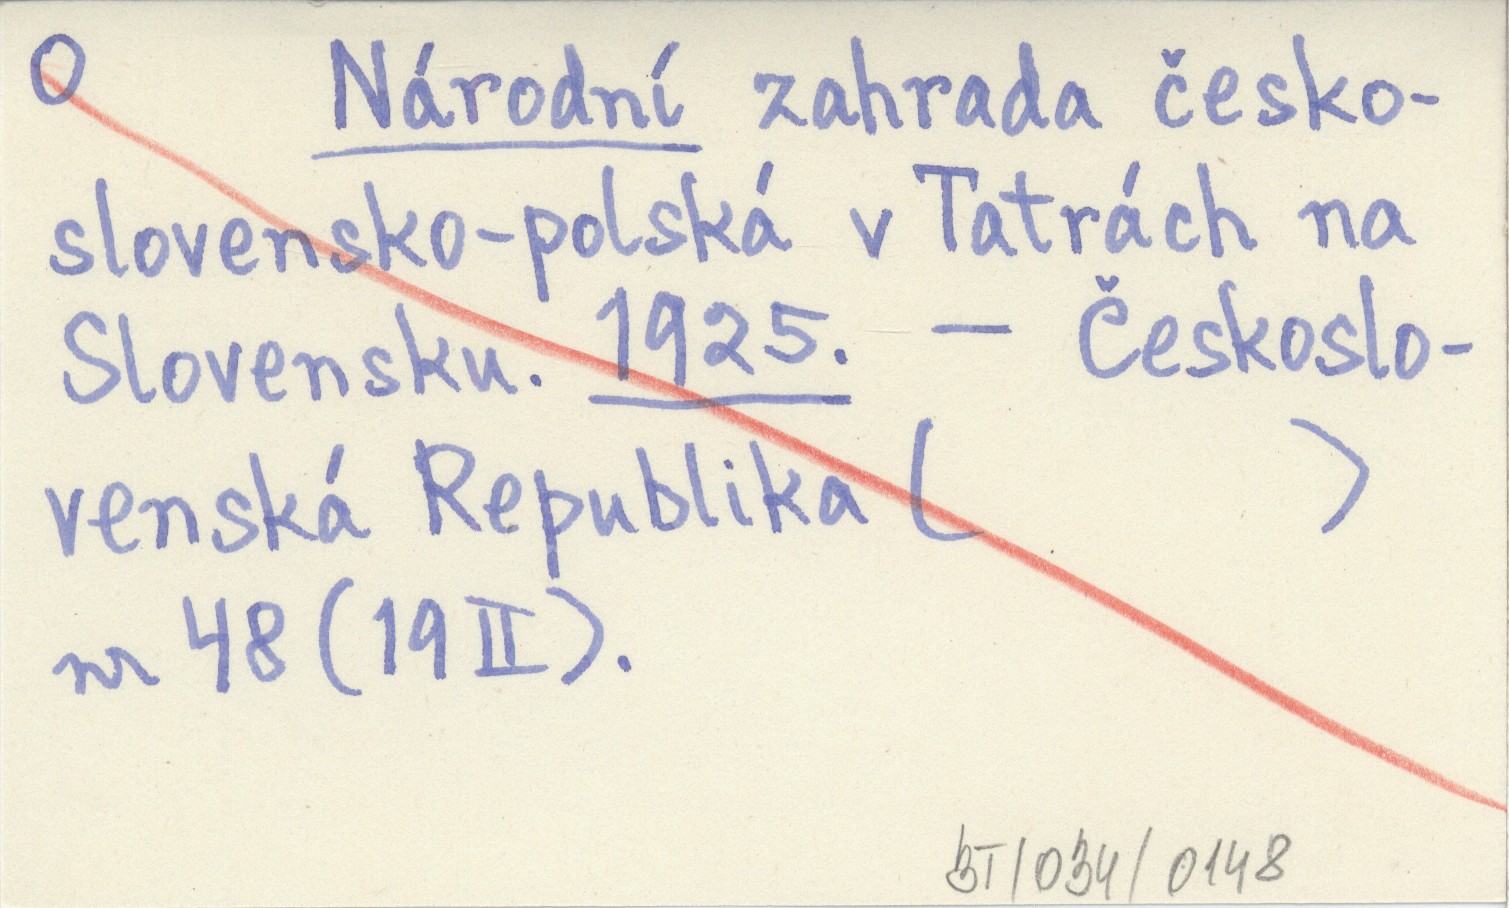 O Národní zahrada česko-
slovensko-polská v Tatrách na
Slovensku. 1925. — Českoslo-
venská Republika ( )
nr 48 (19 II).
BT/034/0148